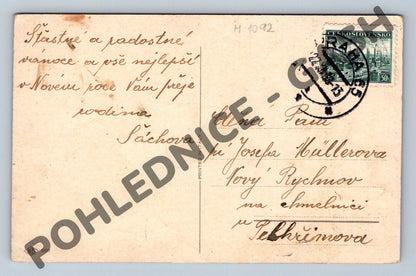 H 1092
Šťastné a radostné
vánoce a vše nejlepší
v Novém roce Vám přeje
rodina
Šáchova
ČESKOSLOVENSKO
PRAHA 65
50
Paní
Josefa Müllerova
Nový Rychnov
na chmelnici
u Pelhřimova
POHLEDNICE - CZECH